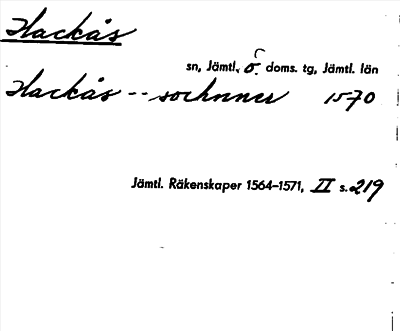 Hackås
sn, Jämtl. ö. doms. tg, Jämtl. län
Hackås -- sochnner 1570
Jämtl. Räkenskaper 1564–1571, II s. 219